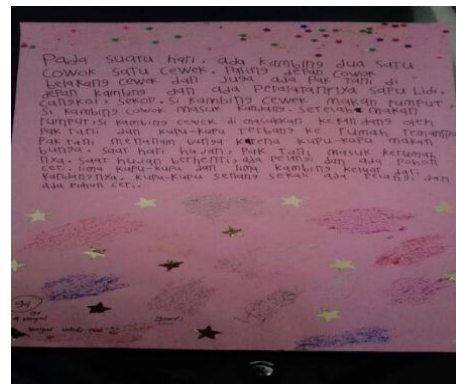 Pada suatu hari, ada kambing dua satu
cowok satu cewek. Paling depan cowok
belakang cewek dan juga ada pak Tani di
depan kambing dan ada peralatannya sapu lidi,
cangkol, sekop. Si kambing cewek makan rumput,
si kambing cowok masuk kandang. Setelah makan
rumput si kambing cewek di masukkan ke kandang oleh
Pak tani dan kupu-kupu terbang ke rumah
Pak tani menanam bunga karena kupu-kupu makan
bunga. saat hari hujan, Pak tani masuk kerumah
nya. saat hujan berhenti, ada pelangi dan ada pohon
ceri. lima kupu-kupu dan lima kambing keluar dari
kandangnya. kupu-kupu senang sekali ada pelangi dan
ada pohon ceri.